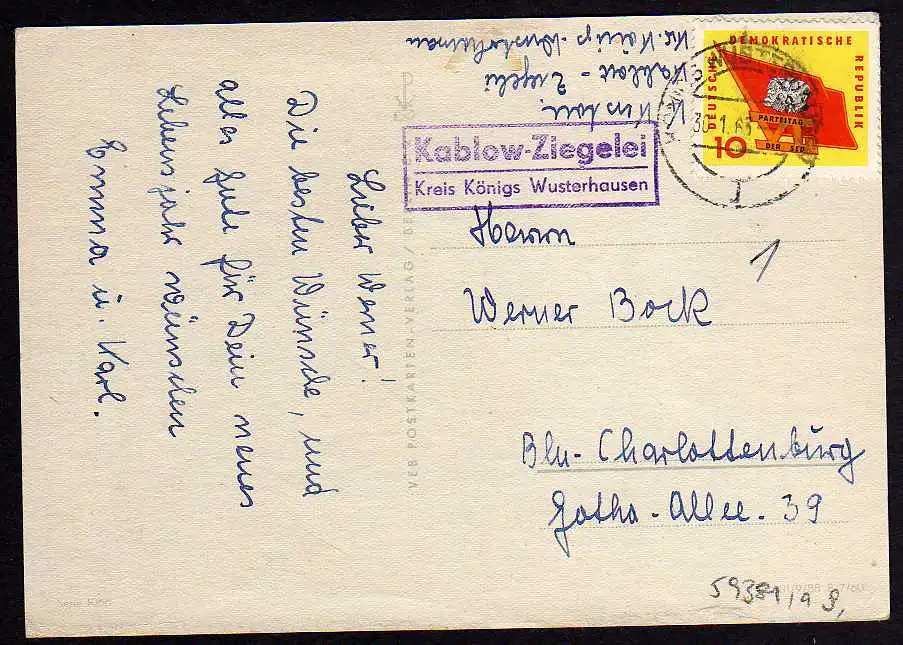 Kablow - Ziegelei
Kr. Königs-Wusterhausen
DEUTSCHE DEMOKRATISCHE REPUBLIK
PARTEITAG
DER SED
10
Kablow-Ziegelei
Kreis Königs Wusterhausen
Lieber Werner!
Die besten Wünsche, und
alles Gute für Dein neues
Lebensjahr wünschen
Emma u. Karl.
VEB POSTKARTEN-VERLAG
Herrn
Werner Bock
1
Bln-Charlottenburg
Gotha-Allee. 39
59381/a 9,